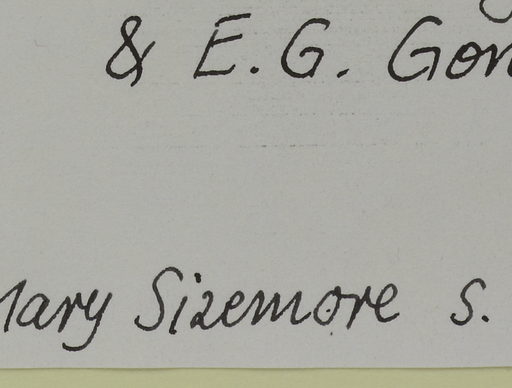 & E. G. Gon
Mary Sizemore s.